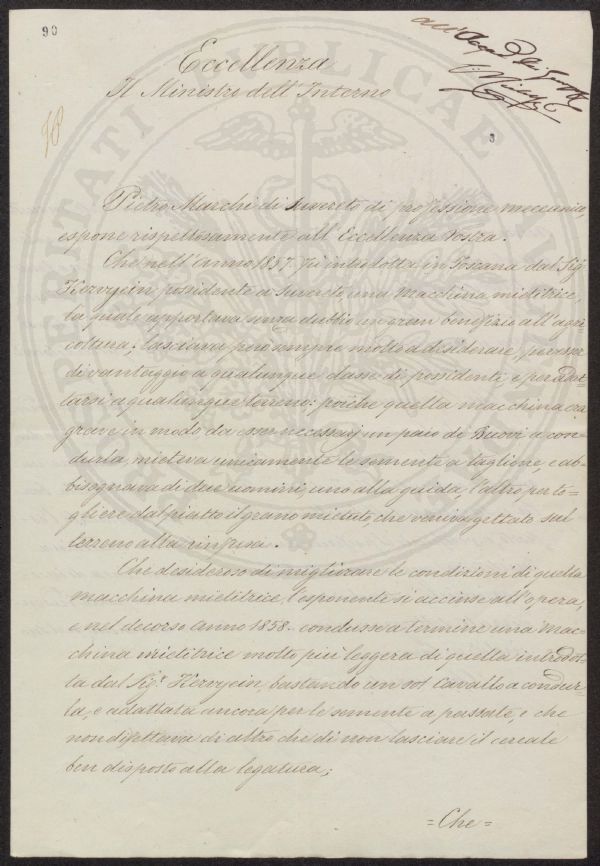 90
Eccellenza
Il Ministro dell'Interno
3
Pietro Marchi di Suvereto di professione meccanico,
espone rispettosamente all'Eccellenza Vostra.
Che nell'anno 1857. fù introdotta in Toscana dal Sig.
possidente a Suvereto una Macchina mietitrice,
la quale apportava senza dubbio un gran benefizio all'agri
coltura; lasciava però sempre molto a desiderare, per esser
di vantaggio a qualunque classe di possidenti, e per adat
tarsi a qualunque terreno: poiche quella macchina era
grave in modo da esser necessarj un paio di Buovi a con=
durla, mieteva unicamente le semente a taglione, e ab=
bisognava di due uomini, uno alla guida, l'altro per to=
gliere dal piatto il grano mietuto, che veniva gettato sul
terreno alla rinfusa.
Che desideroso di migliorare le condizioni di quella
macchina mietitrice, l'esponente si accinse all'opera,
e nel decorso anno 1858. condusse a termine una Mac=
china mietitrice molto più leggera di quella introdot=
ta dal Sig.r bastando un sol Cavallo a condur=
la, e adattata ancora per le semente a passate, e che
non difettava di altro che di non lasciare il cereale
ben disposto alla legatura;
=Che=
PERITATI PUBLICAE